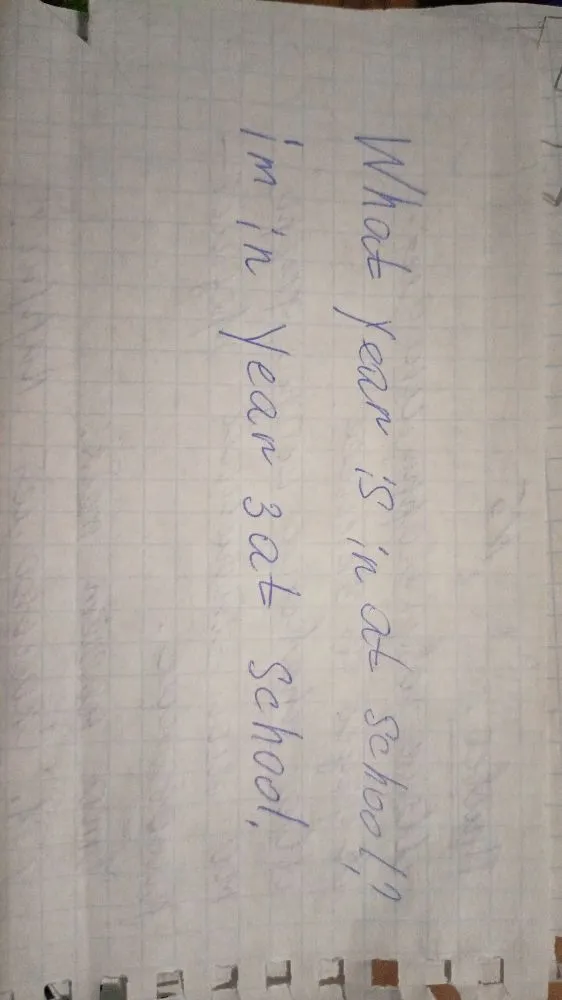 What year is in at school?
im in year 3 at school.